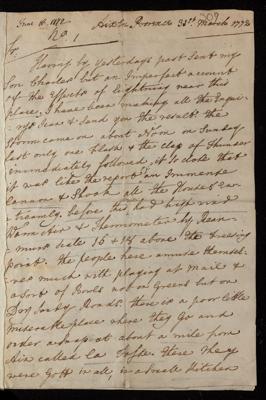 No. 1 Aix in Provence 31st March 1773
Sir,
Having by Yesterdays past sent my
Son Charles but an Imperfect account
of the Effects of Lightning near this
place, I have been making all the Enqui-
rys I can & send you the result: the
Storm came on about Noon on Sunday
last only one flash & the clap of thunder
immediately followed, it so close that
it was like the report of an Immense
Canon & Shook all the Houses Ex-
treamly. before this had
& Thermometer by Rean-
murs Scale 15 & 18 above the freezing
point. the people here amuse themsel-
ves much with playing at Mail &
a sort of Bowls not on Greens but on
Dry Roads. there is a poor little
miserable place where they Go and
order at about a mile from
Aix called La there they
were Gott in all, in a small Kitchen